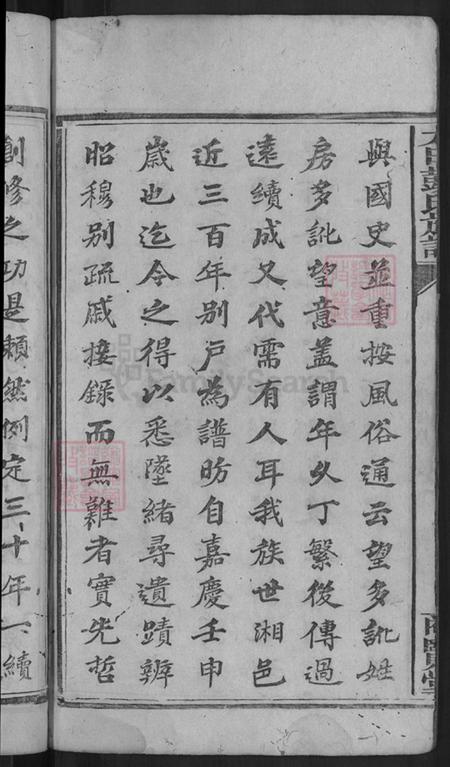 與國史並重按風俗通云望多訛姓
房多訛望意蓋謂年久丁繁後傳過
遠續成又代需有人耳我族世湘邑
近三百年別戶為譜昉自嘉慶壬申
歲也迄今之得以悉墜緒尋遺蹟辨
昭穆別疏戚接錄而無難者實先哲
創修之功是賴然例定三十年一續
FamilySearch